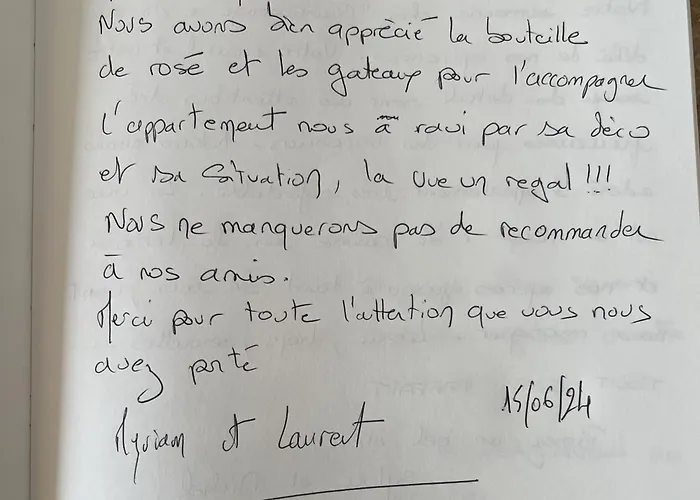 Nous avons bien apprècié la bouteille
de rosé et les gateaux pour l'accompagner
L'appartement nous à ravi par sa dèco
et sa situation, la vue un regal !!!
Nous ne manquerons pas de recommander
à nos amis.
Merci pour toute l'attention que vous nous
avez porté
15/06/24
Myriam et Laurent